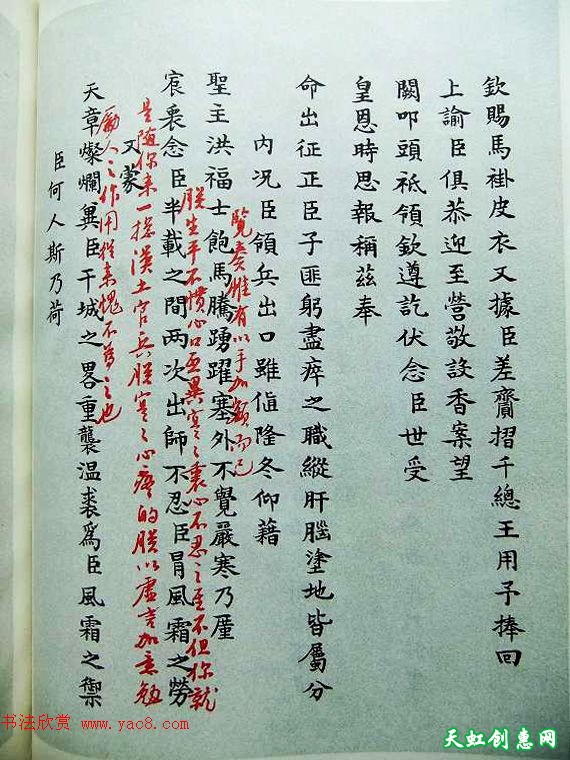 欽賜馬褂皮衣又據臣差齎摺千總王用予捧回
上諭臣俱恭迎至營敬設香案望
闕叩頭祗領欽遵訖伏念臣世受
皇恩時思報稱茲奉
命出征正臣子匪躬盡瘁之職縱肝腦塗地皆屬分
內况臣領兵出口雖值隆冬仰藉
覽奏惟有以手加額而已
聖主洪福士飽馬騰踴躍塞外不覺嚴寒乃厪
朕生平不慣心口亟異寔寔衷心不忍之至不但你就
宸衷念臣半載之間两次出師不忍臣冒風霜之勞
是隨你来一搃漢土官兵朕寔寔心疼的朕以虛言加意勉
又蒙
勵人之作用從来愧不為之也
天章燦爛兾臣干城之畧重襲温裘為臣風霜之禦
臣何人斯乃荷
书法欣赏 www.yac8.com
天虹创惠网